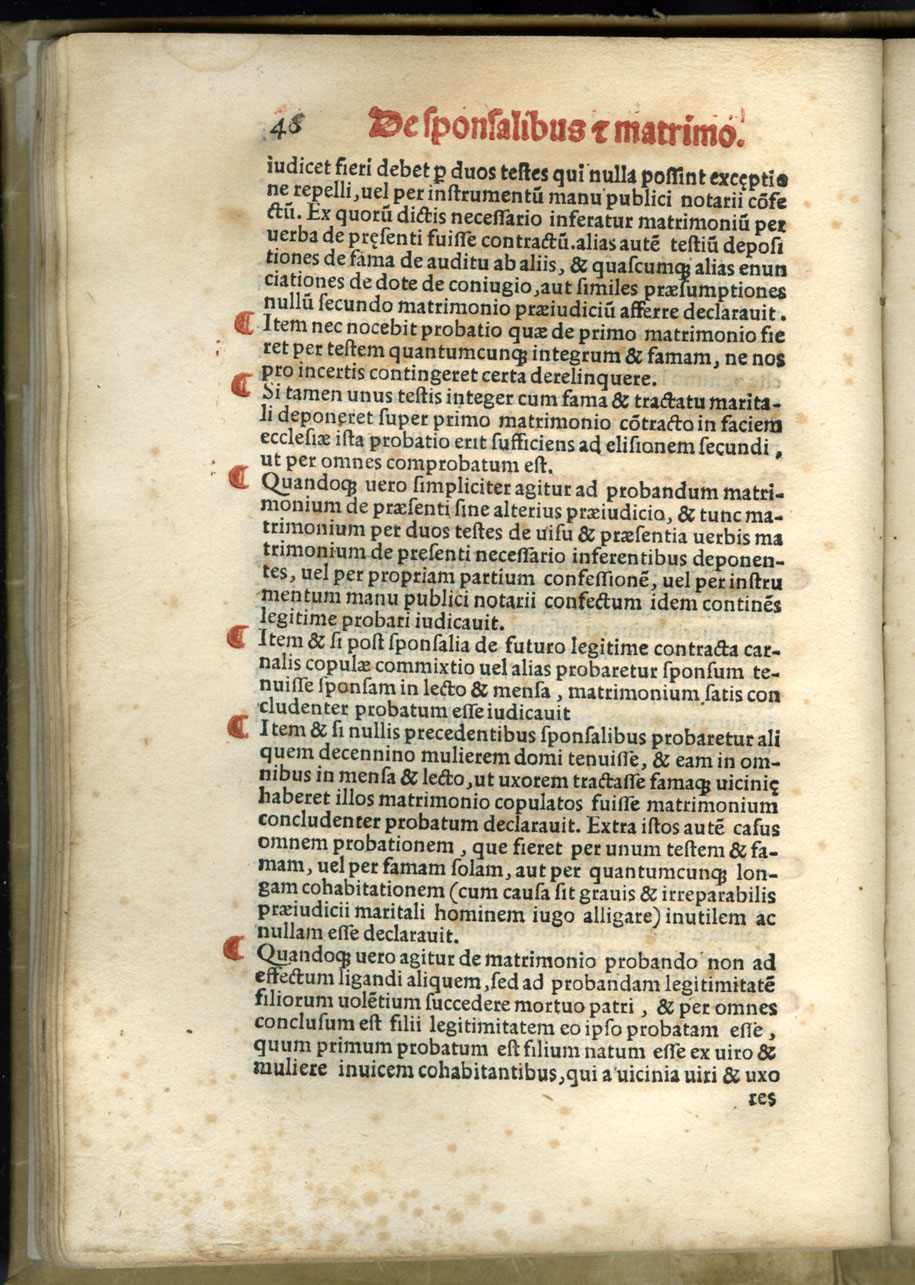 48 De sponsalibus ⁊ matrimo.
iudicet fieri debet ꝑ duos testes qui nulla possint excęptio
ne repelli, uel per instrumentū manu publici notarii cōfe
ctū. Ex quorū dictis necessario inferatur matrimoniū per
uerba de pręsenti fuisse contractū. alias autē testiū deposi
tiones de fama de auditu ab aliis, & quascumqꝫ alias enun
ciationes de dote de coniugio, aut similes præsumptiones
nullū secundo matrimonio præiudiciū afferre declarauit.
¶ Item nec nocebit probatio quæ de primo matrimonio fie
ret per testem quantumcunqꝫ integrum & famam, ne nos
pro incertis contingeret certa derelinquere.
¶ Si tamen unus testis integer cum fama & tractatu marita-
li deponeret super primo matrimonio cōtracto in faciem
ecclesiæ ista probatio erit sufficiens ad elisionem secundi,
ut per omnes comprobatum est.
¶ Quandoqꝫ uero simpliciter agitur ad probandum matri-
monium de præsenti sine alterius præiudicio, & tunc ma-
trimonium per duos testes de uisu & præsentia uerbis ma
trimonium de presenti necessario inferentibus deponen-
tes, uel per propriam partium confessionē, uel per instru
mentum manu publici notarii confectum idem continēs
legitime probari iudicauit.
¶ Item & si post sponsalia de futuro legitime contracta car-
nalis copulæ commixtio uel alias probaretur sponsum te-
nuisse sponsam in lecto & mensa, matrimonium satis con
cludenter probatum esse iudicauit
¶ Item & si nullis precedentibus sponsalibus probaretur ali
quem decennino mulierem domi tenuisse, & eam in om-
nibus in mensa & lecto, ut uxorem tractasse famaqꝫ uicinię
haberet illos matrimonio copulatos fuisse matrimonium
concludenter probatum declarauit. Extra istos autē casus
omnem probationem, que fieret per unum testem & fa-
mam, uel per famam solam, aut per quantumcunqꝫ lon-
gam cohabitationem (cum causa sit grauis & irreparabilis
præiudicii maritali hominem iugo alligare) inutilem ac
nullam esse declarauit.
¶ Quandoqꝫ uero agitur de matrimonio probando non ad
effectum ligandi aliquem, sed ad probandam legitimitatē
filiorum uolētium succedere mortuo patri, & per omnes
conclusum est filii legitimitatem eo ipso probatam esse,
quum primum probatum est filium natum esse ex uiro &
muliere inuicem cohabitantibus, qui a uicinia uiri & uxo
res